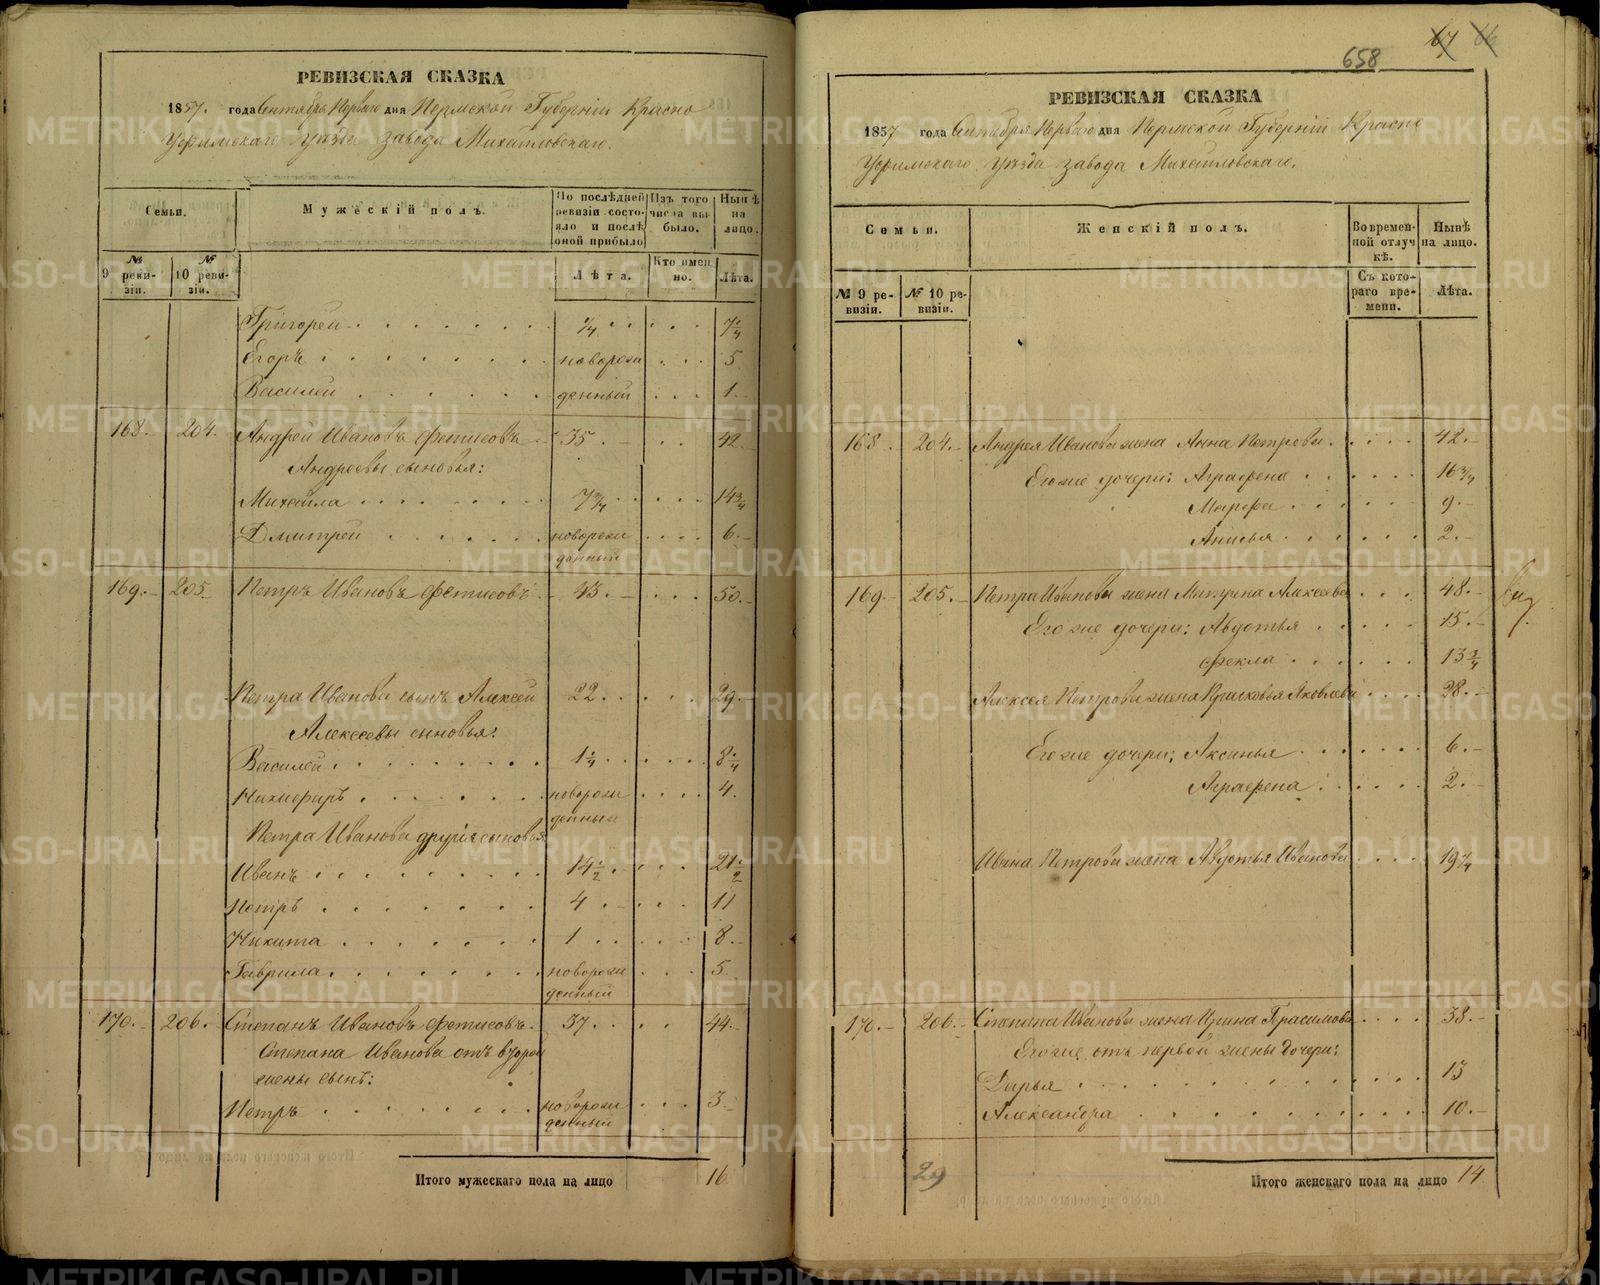 РЕВИЗСКАЯ СКАЗКА
1857. года Сентября Перваго дня Пермской Губерніи Красно
Уфимскаго Уѣзда завода Михайловскаго.
Семьи.
Мужескій полъ.
По послѣдней ревизіи состояло и послѣ оной прибыло
Изъ того числа выбыло.
Нынѣ на лицо.
№ 9 ревизіи.
№ 10 ревизіи.
Лѣта.
Кто именно.
Лѣта.
Григорей 1/4 7 1/4
Егоръ новорож 5
Василей денный 1
168. 204. Андрей Ивановъ Фетисовъ 35 42
Андреевы сыновья:
Михайла 7 3/4 14 3/4
Дмитрей новорож 6
денный
169. 205. Петръ Ивановъ Фетисовъ 43. 50
Петра Иванова сынъ Алексей 22 29
Алексеевы сыновья:
Василей 1 1/4 8 1/4
Никифоръ новорож 4.
денный
Петра Иванова другія сыновья
Иванъ 14 1/2 21 1/2
Петръ 4 11
Никита 1 8
Гаврила новорож 5
денный
170. 206. Степанъ Ивановъ Фетисовъ 37 44
Степана Иванова отъ второй
жены сынъ:
Петръ новорож 3
денный
Итого мужескаго пола на лицо 16
67 66
658
РЕВИЗСКАЯ СКАЗКА
1857 года Сентября Перваго дня Пермской Губерніи Красно
Уфимскаго Уѣзда завода Михайловскаго.
Семьи.
Женскій полъ.
Во временной отлучкѣ.
Нынѣ на лицо.
№ 9 ревизіи.
№ 10 ревизіи.
Съ котораго времени.
Лѣта.
168 204 Андрея Иванова жена Анна Петрова 42
Его же дочери: Аграфена 16 3/4
Марфа 9
Анисья 2
169. 205. Петра Иванова жена Матрена Алексеева 48
Его же дочери: Авдотья 15
Фекла 13 3/4
Алексея Петрова жена Прасковья Яковлева 28
Его же дочери: Аксинья 6
Аграфена 2
Ивана Петрова жена Авдотья Иванова 19 1/4
170. 206 Степана Иванова жена Ирина Герасимова 38
Его же отъ первой жены дочери:
Дарья 13
Александра 10
Итого женскаго пола на лицо 14
29
METRIKI.GASO-URAL.RU